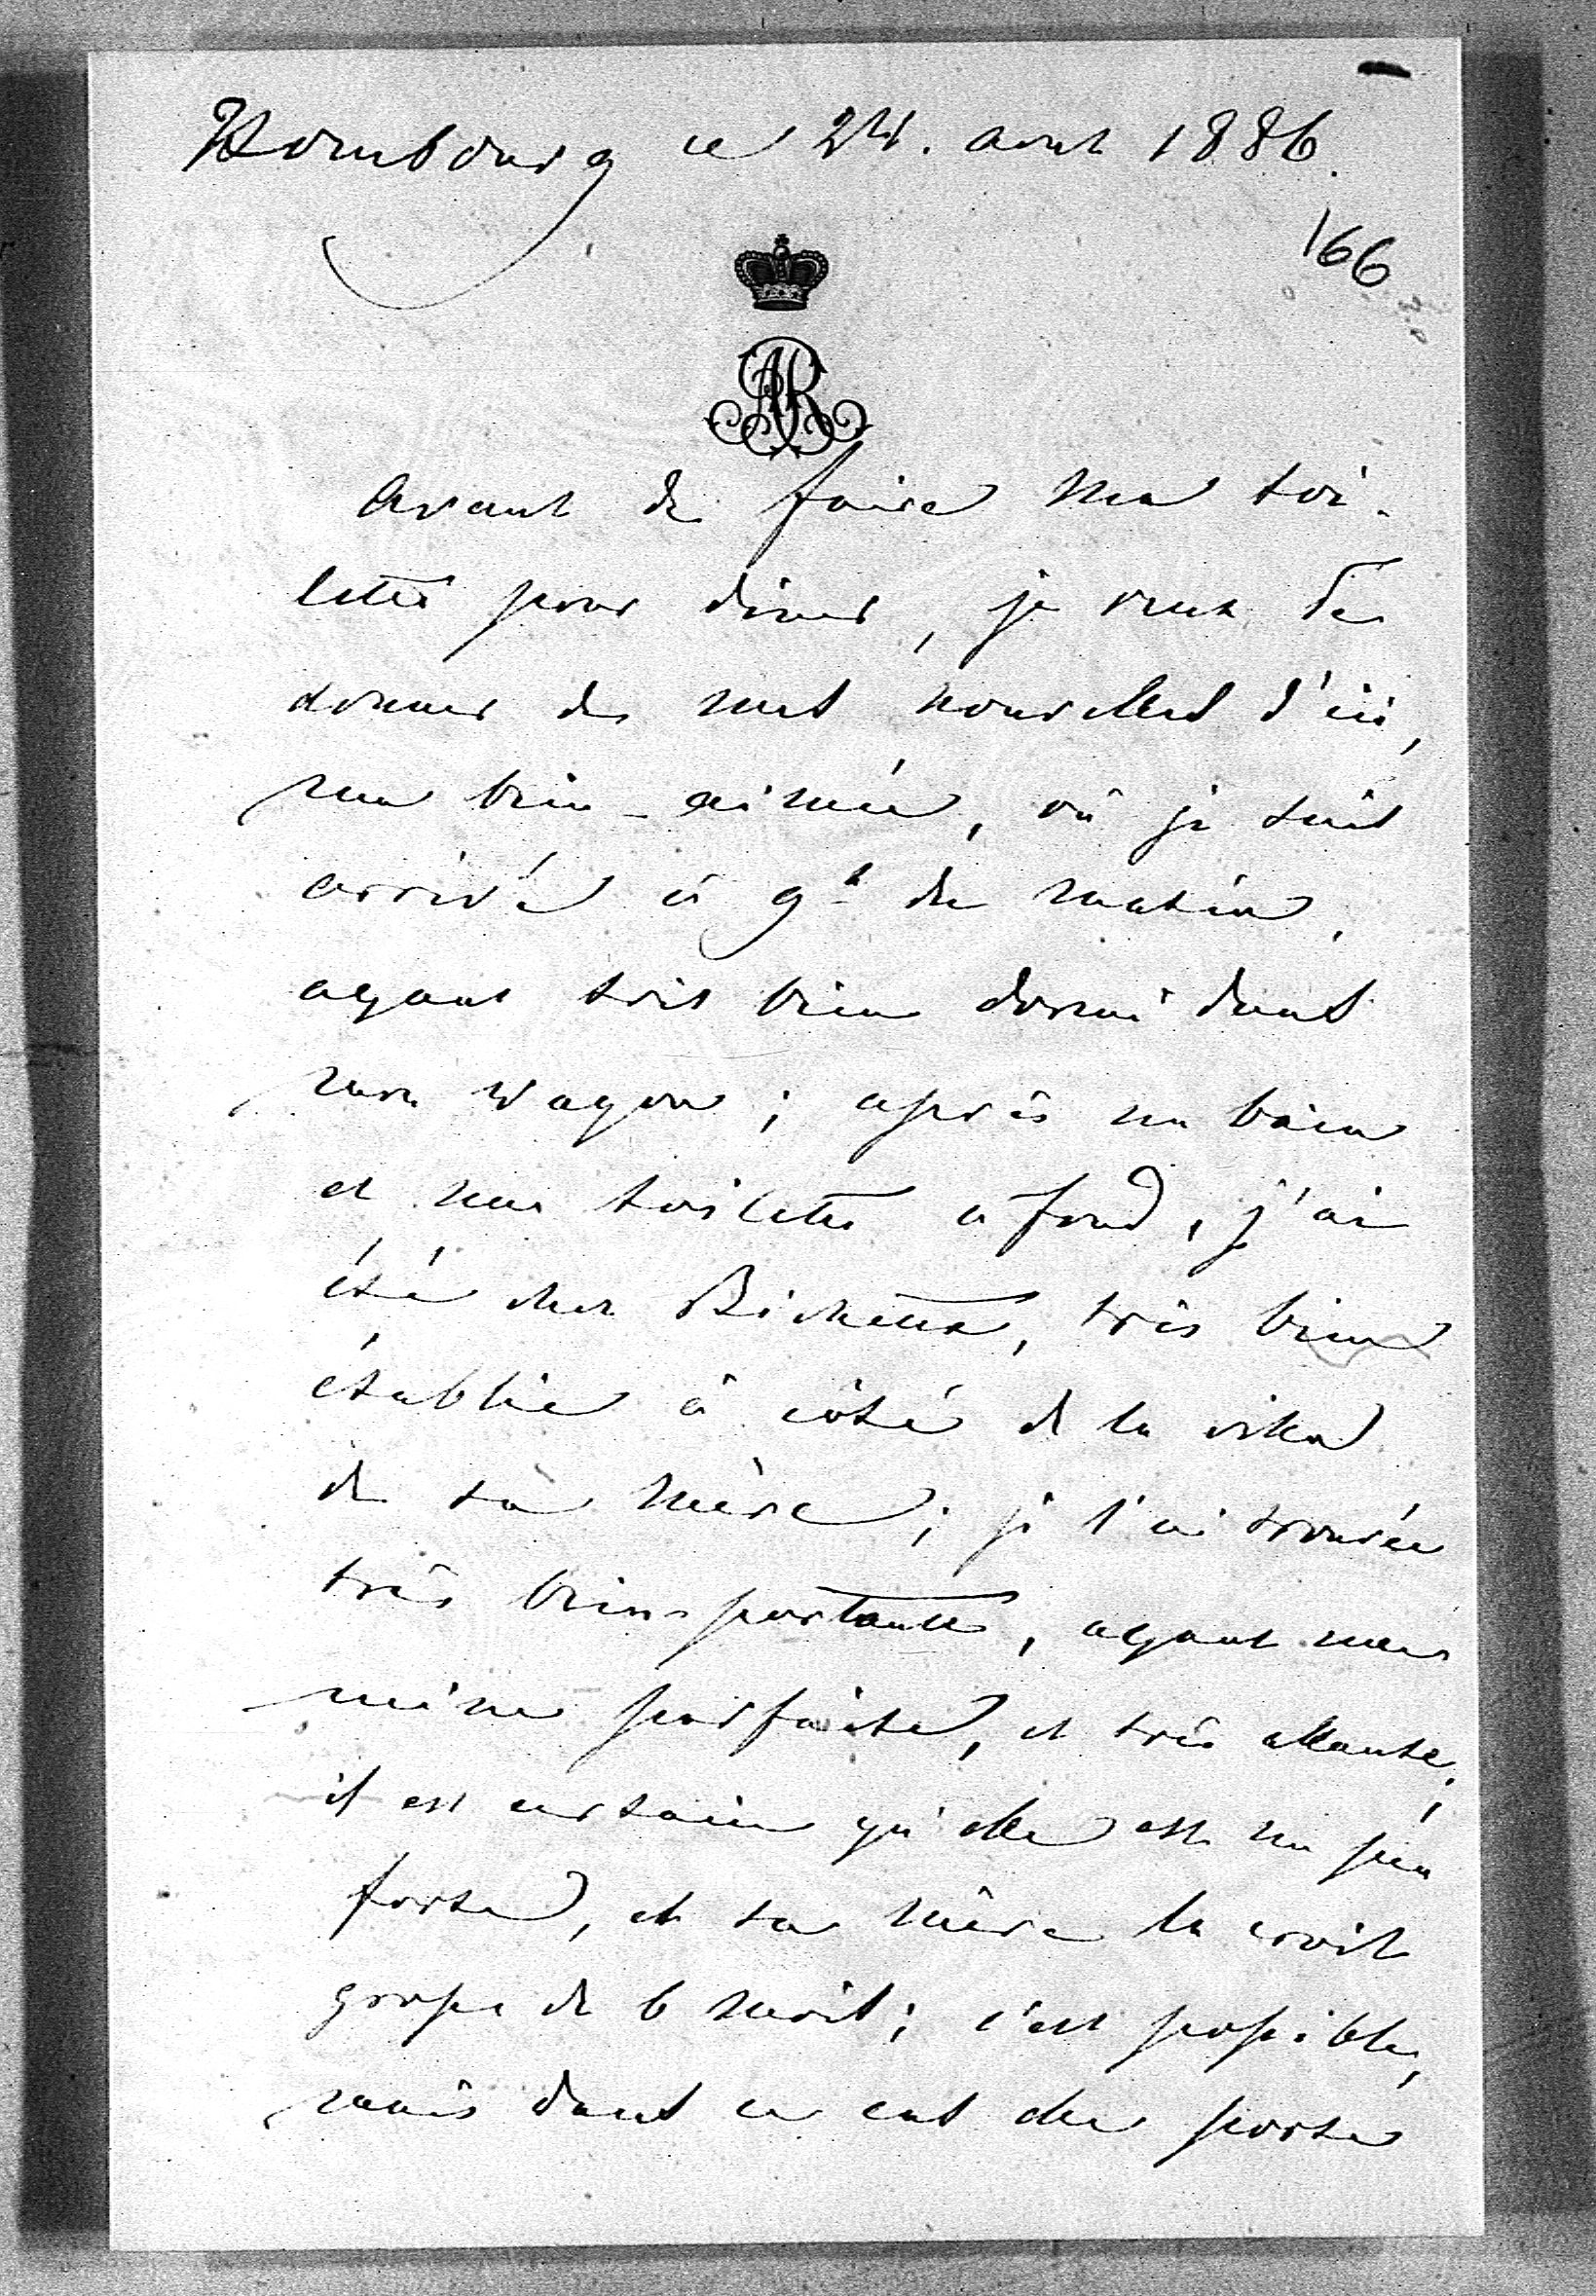 Hombourg ce 24. août 1886.
166
AR
Avant de faire ma toi-
lette pour dîner, je veux Te
donner de mes nouvelles d'ici,
ma bien-aimée, où je suis
arrivé à 9h du matin,
ayant très bien dormi dans
mon wagon; après un bain
et une toilette à fond, j'ai
été chez Bichette, très bien
établie à côté de la villa
de sa mère; je l'ai trouvée
très bien portante, ayant une
mine parfaite, et très allante;
il est certain qu'elle est un peu
forte, et sa mère la croit
grosse de 6 mois; c'est possible,
mais dans ce cas elle porte